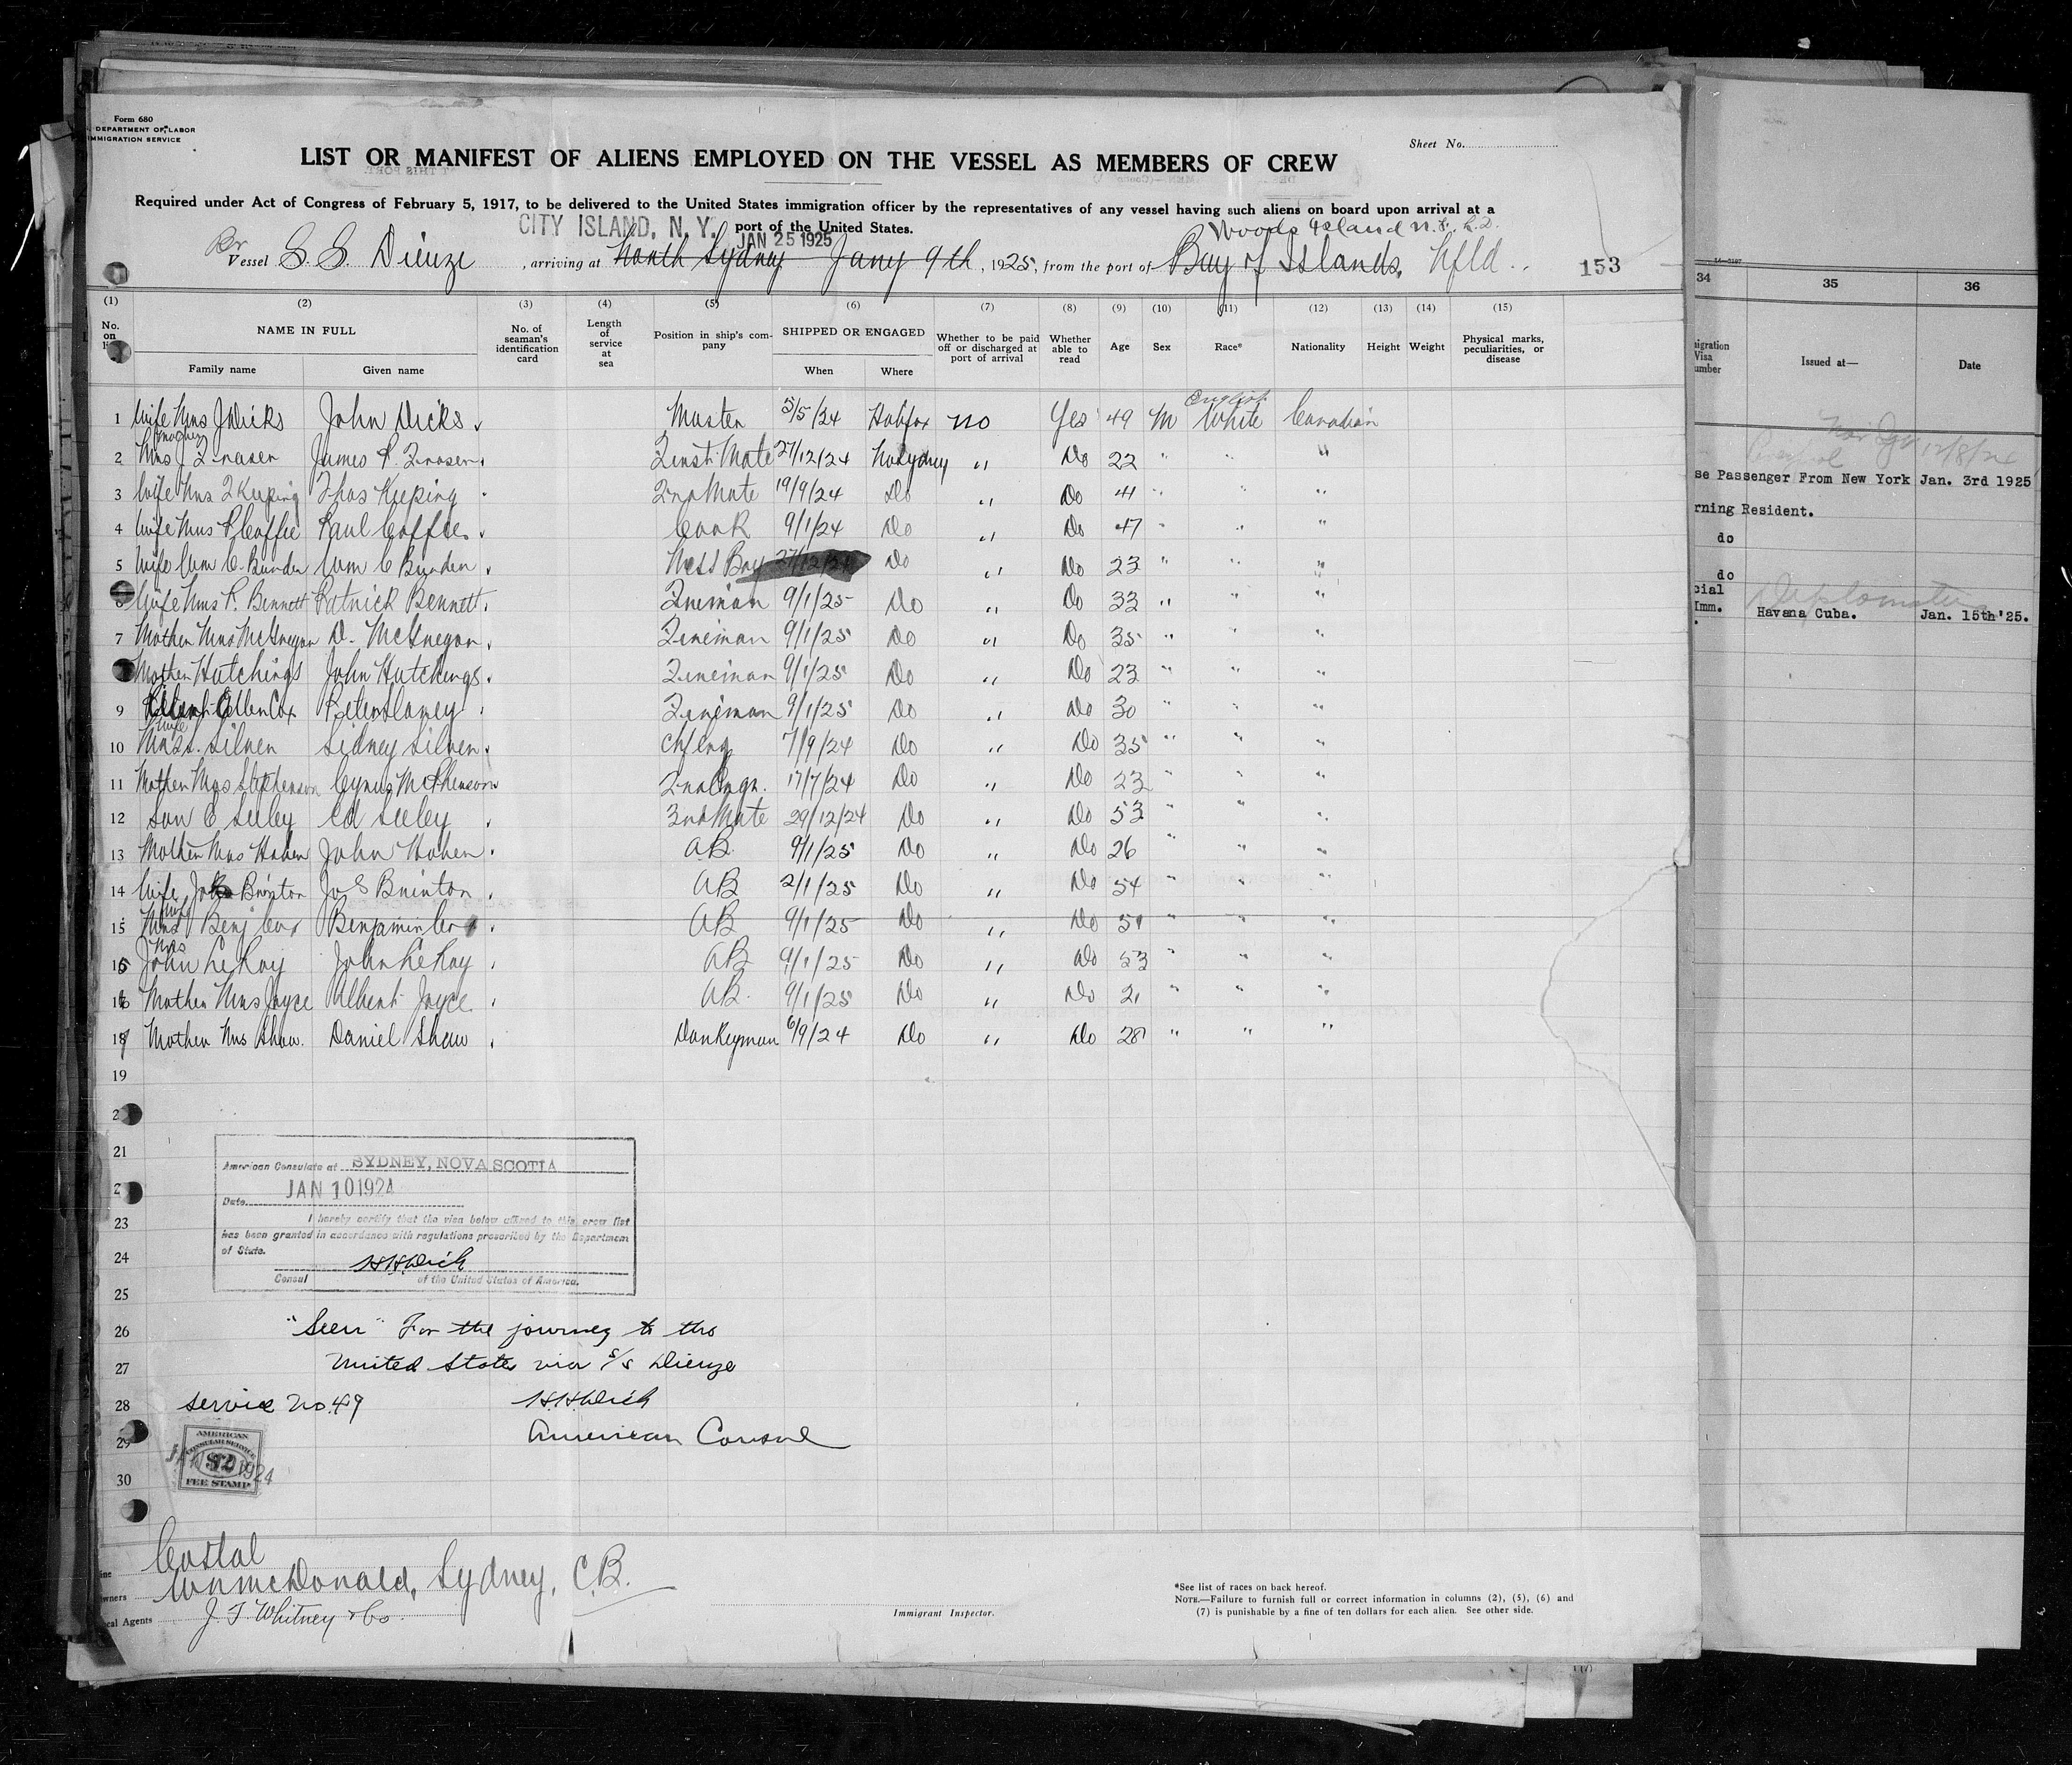 Form 680
DEPARTMENT OF LABOR
IMMIGRATION SERVICE
Sheet No.
LIST OR MANIFEST OF ALIENS EMPLOYED ON THE VESSEL AS MEMBERS OF CREW
Required under Act of Congress of February 5, 1917, to be delivered to the United States immigration officer by the representatives of any vessel having such aliens on board upon arrival at a
port of the United States.
CITY ISLAND, N. Y.
JAN 25 1925
Woods Island N.F.
Vessel S. S. Dieuze, arriving at North Sydney Jany 9th, 1925, from the port of Bay of Islands, Nfld.
153
(1) (2) (3) (4) (5) (6) (7) (8) (9) (10) (11) (12) (13) (14) (15)
No. on NAME IN FULL Family name Given name No. of seaman's identification card Length of service at sea Position in ship's company SHIPPED OR ENGAGED When Where Whether to be paid off or discharged at port of arrival Whether able to read Age Sex Race* Nationality Height Weight Physical marks, peculiarities, or disease
English
1 Wife Mrs J Dicks John Dicks Master 5/5/24 Halifax no Yes 49 M White Canadian
2 Mrs J Fraser James P. Fraser First Mate 27/12/24 No Sydney " Do 22 " " "
3 Wife Mrs T Keeping Thos Keeping 2nd Mate 19/9/24 Do " Do 41 " " "
4 Wife Mrs P Coffie Paul Coffie Cook 9/1/24 Do " Do 47 " " "
5 Wife Wm C. Burden Wm C Burden Mess Boy 27/12/24 Do " Do 23 " " "
6 Wife Mrs P. Bennett Patrick Bennett Fireman 9/1/25 Do " Do 33 " " "
7 Mother Mrs McGregor D. McGregor Fireman 9/1/25 Do " Do 35 " " "
Mother Hutchings John Hutchings Fireman 9/1/25 Do " Do 23 " " "
9 Ellen Cox Peter Slaney Fireman 9/1/25 Do " Do 30 " " "
wife
10 Mrs S. Silver Sidney Silver Ch Eng 7/9/24 Do " Do 35 " " "
11 Mother Mrs Stephenson Cyrus McPhenson 2nd Engr. 17/7/24 Do " Do 23 " " "
12 Son E Seeley Ed Seeley 3rd Mate 29/12/24 Do " Do 53 " " "
13 Mother Mrs Haben John Haben AB 9/1/25 Do " Do 26 " " "
14 Wife Brinton Jos Brinton AB 2/1/25 Do " Do 54 " " "
wife
15 Mrs Benj Cox Benjamin Cox AB 9/1/25 Do " Do 51 " " "
Mrs
15 John LeRoy John LeRoy AB 9/1/25 Do " Do 53 " " "
16 Mother Mrs Joyce Albert Joyce AB. 9/1/25 Do " Do 21 " " "
18 Mother Mrs Shaw. Daniel Shaw Donkeyman 6/9/24 Do " Do 28 " " "
19
21
American Consulate at SYDNEY, NOVA SCOTIA
Date JAN 10 1924
23
I hereby certify that the visa below affixed to this crew list
has been granted in accordance with regulations prescribed by the Department
of State.
24
Consul of the United States of America.
25
26 "Seen" For the journey to the
27 United States via s/s Dieuze
28 service No. 49
29 American Consul
30
AMERICAN CONSULAR SERVICE $2 FEE STAMP
JAN 10 1924
Costal
Owners Wm McDonald, Sydney, C.B.
Local Agents J. F. Whitney & Co.
Immigrant Inspector.
*See list of races on back hereof.
NOTE.—Failure to furnish full or correct information in columns (2), (5), (6) and
(7) is punishable by a fine of ten dollars for each alien. See other side.
34 35 36
Visa Issued at— Date
12/8/24
Passenger From New York Jan. 3rd 1925
Resident.
do
do
Imm. Havana Cuba. Jan. 15th '25.